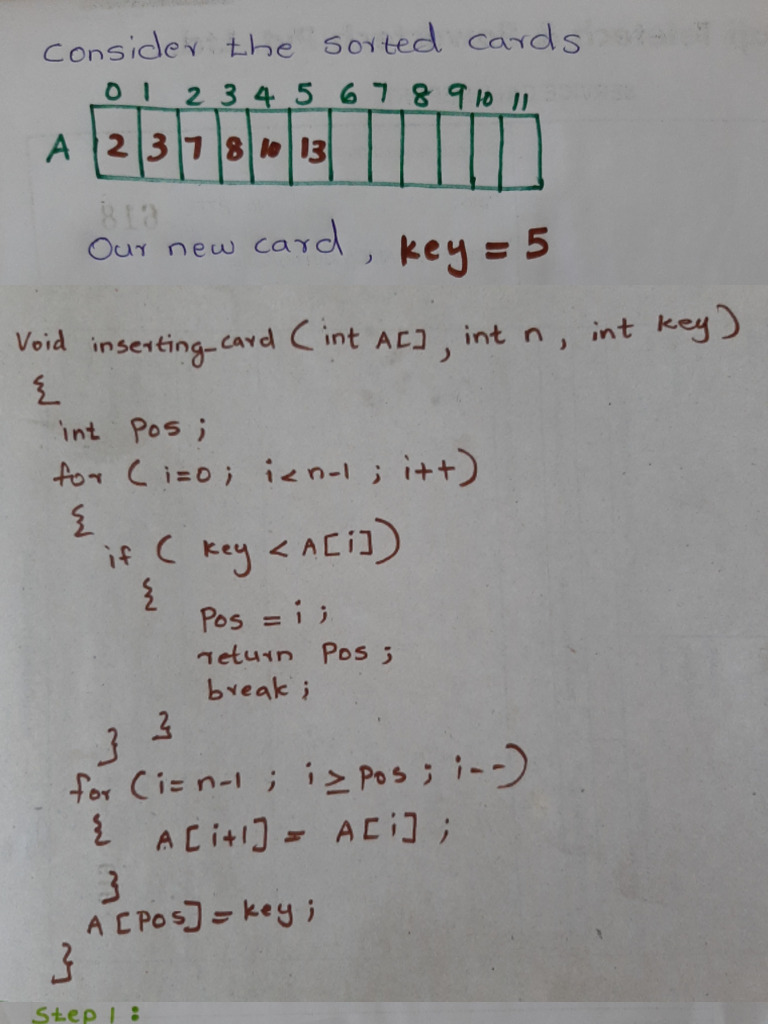 Consider the sorted cards
0 1 2 3 4 5 6 7 8 9 10 11
A 2 3 7 8 10 13
Our new card, key = 5
Void inserting_card (int A[], int n, int key)
{
int pos;
for (i=0; i<n-1; i++)
{
if (key < A[i])
{
Pos = i;
return Pos;
break;
}
}
for (i=n-1; i≥pos; i--)
{ A[i+1] = A[i];
}
A[pos]=key;
}
Step 1: